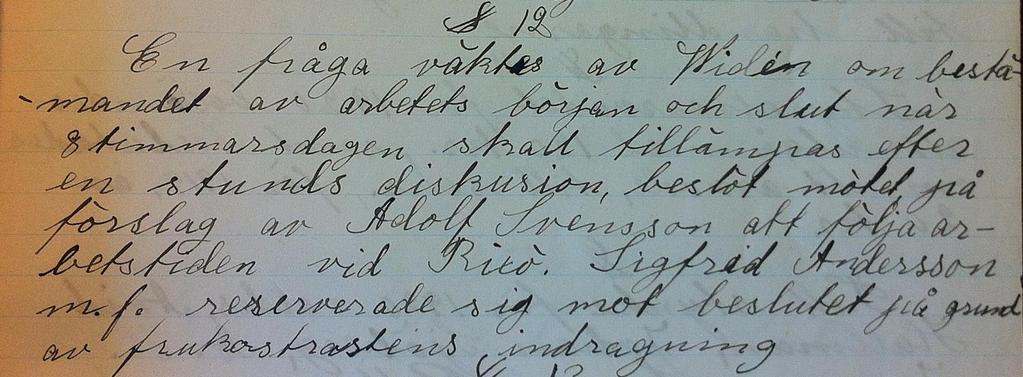 § 12
En fråga väktes av Widén om bestä-
mandet av arbetets början och slut när
8timmarsdagen skall tillämpas efter
en stunds diskusion, beslöt mötet på
förslag av Adolf Svensson att följa ar-
betstiden vid Rixö. Sigfrid Andersson
m.f. reserverade sig mot beslutet på grund
av frukostrastens indragning